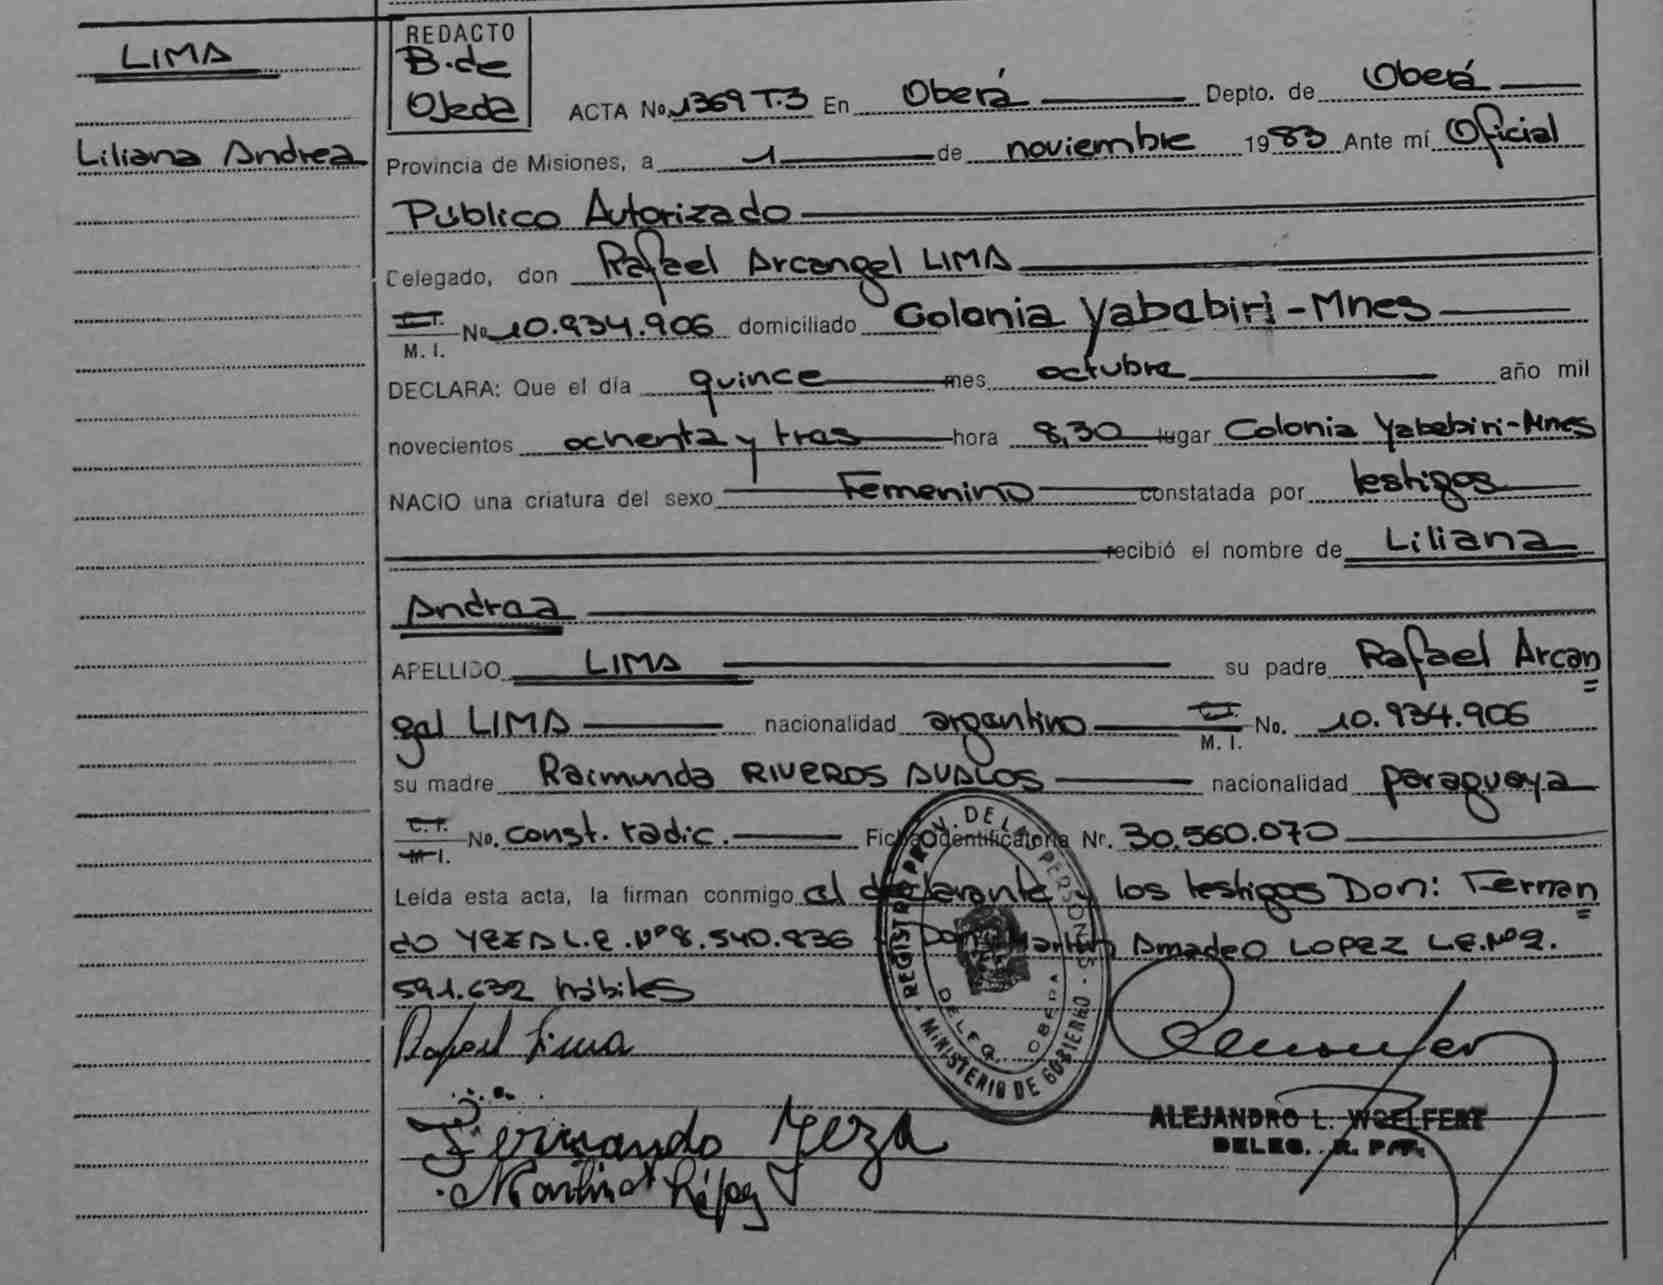 LIMA
Liliana Andrea
REDACTO
B. de
Ojeda
ACTA No. 1369 T.3 En Oberá Depto. de Oberá
Provincia de Misiones, a 1 de noviembre 1983 Ante mí Oficial
Público Autorizado
Delegado, don Rafael Arcangel LIMA
M. I. No. 10.934.906 domiciliado Colonia Yababiri - Mnes
DECLARA: Que el día quince mes octubre año mil
novecientos ochenta y tres hora 8,30 lugar Colonia Yabebiri-Mnes
NACIO una criatura del sexo Femenino constatada por testigos
recibió el nombre de Liliana
Andrea
APELLIDO LIMA su padre Rafael Arcan
gel LIMA nacionalidad argentino M. I. No. 10.934.906
su madre Raimunda RIVEROS AVALOS nacionalidad paraguaya
C.I. M.I. No. const. radic. Ficha Identificatoria Nr. 30.560.070
Leída esta acta, la firman conmigo el declarante y los testigos Don: Fernan
do YEZA L.E. Nº 8.540.836 y Don: Martin Amadeo LOPEZ L.E. Nº 2.
591.632 hábiles
Rafael Lima
Fernando Yeza
Martin A López
REGISTRO PROV. DE LAS PERSONAS - MINISTERIO DE GOBIERNO -
DELEG. OBERA
ALEJANDRO L. WOELFERT
DELEG. R. P. P.